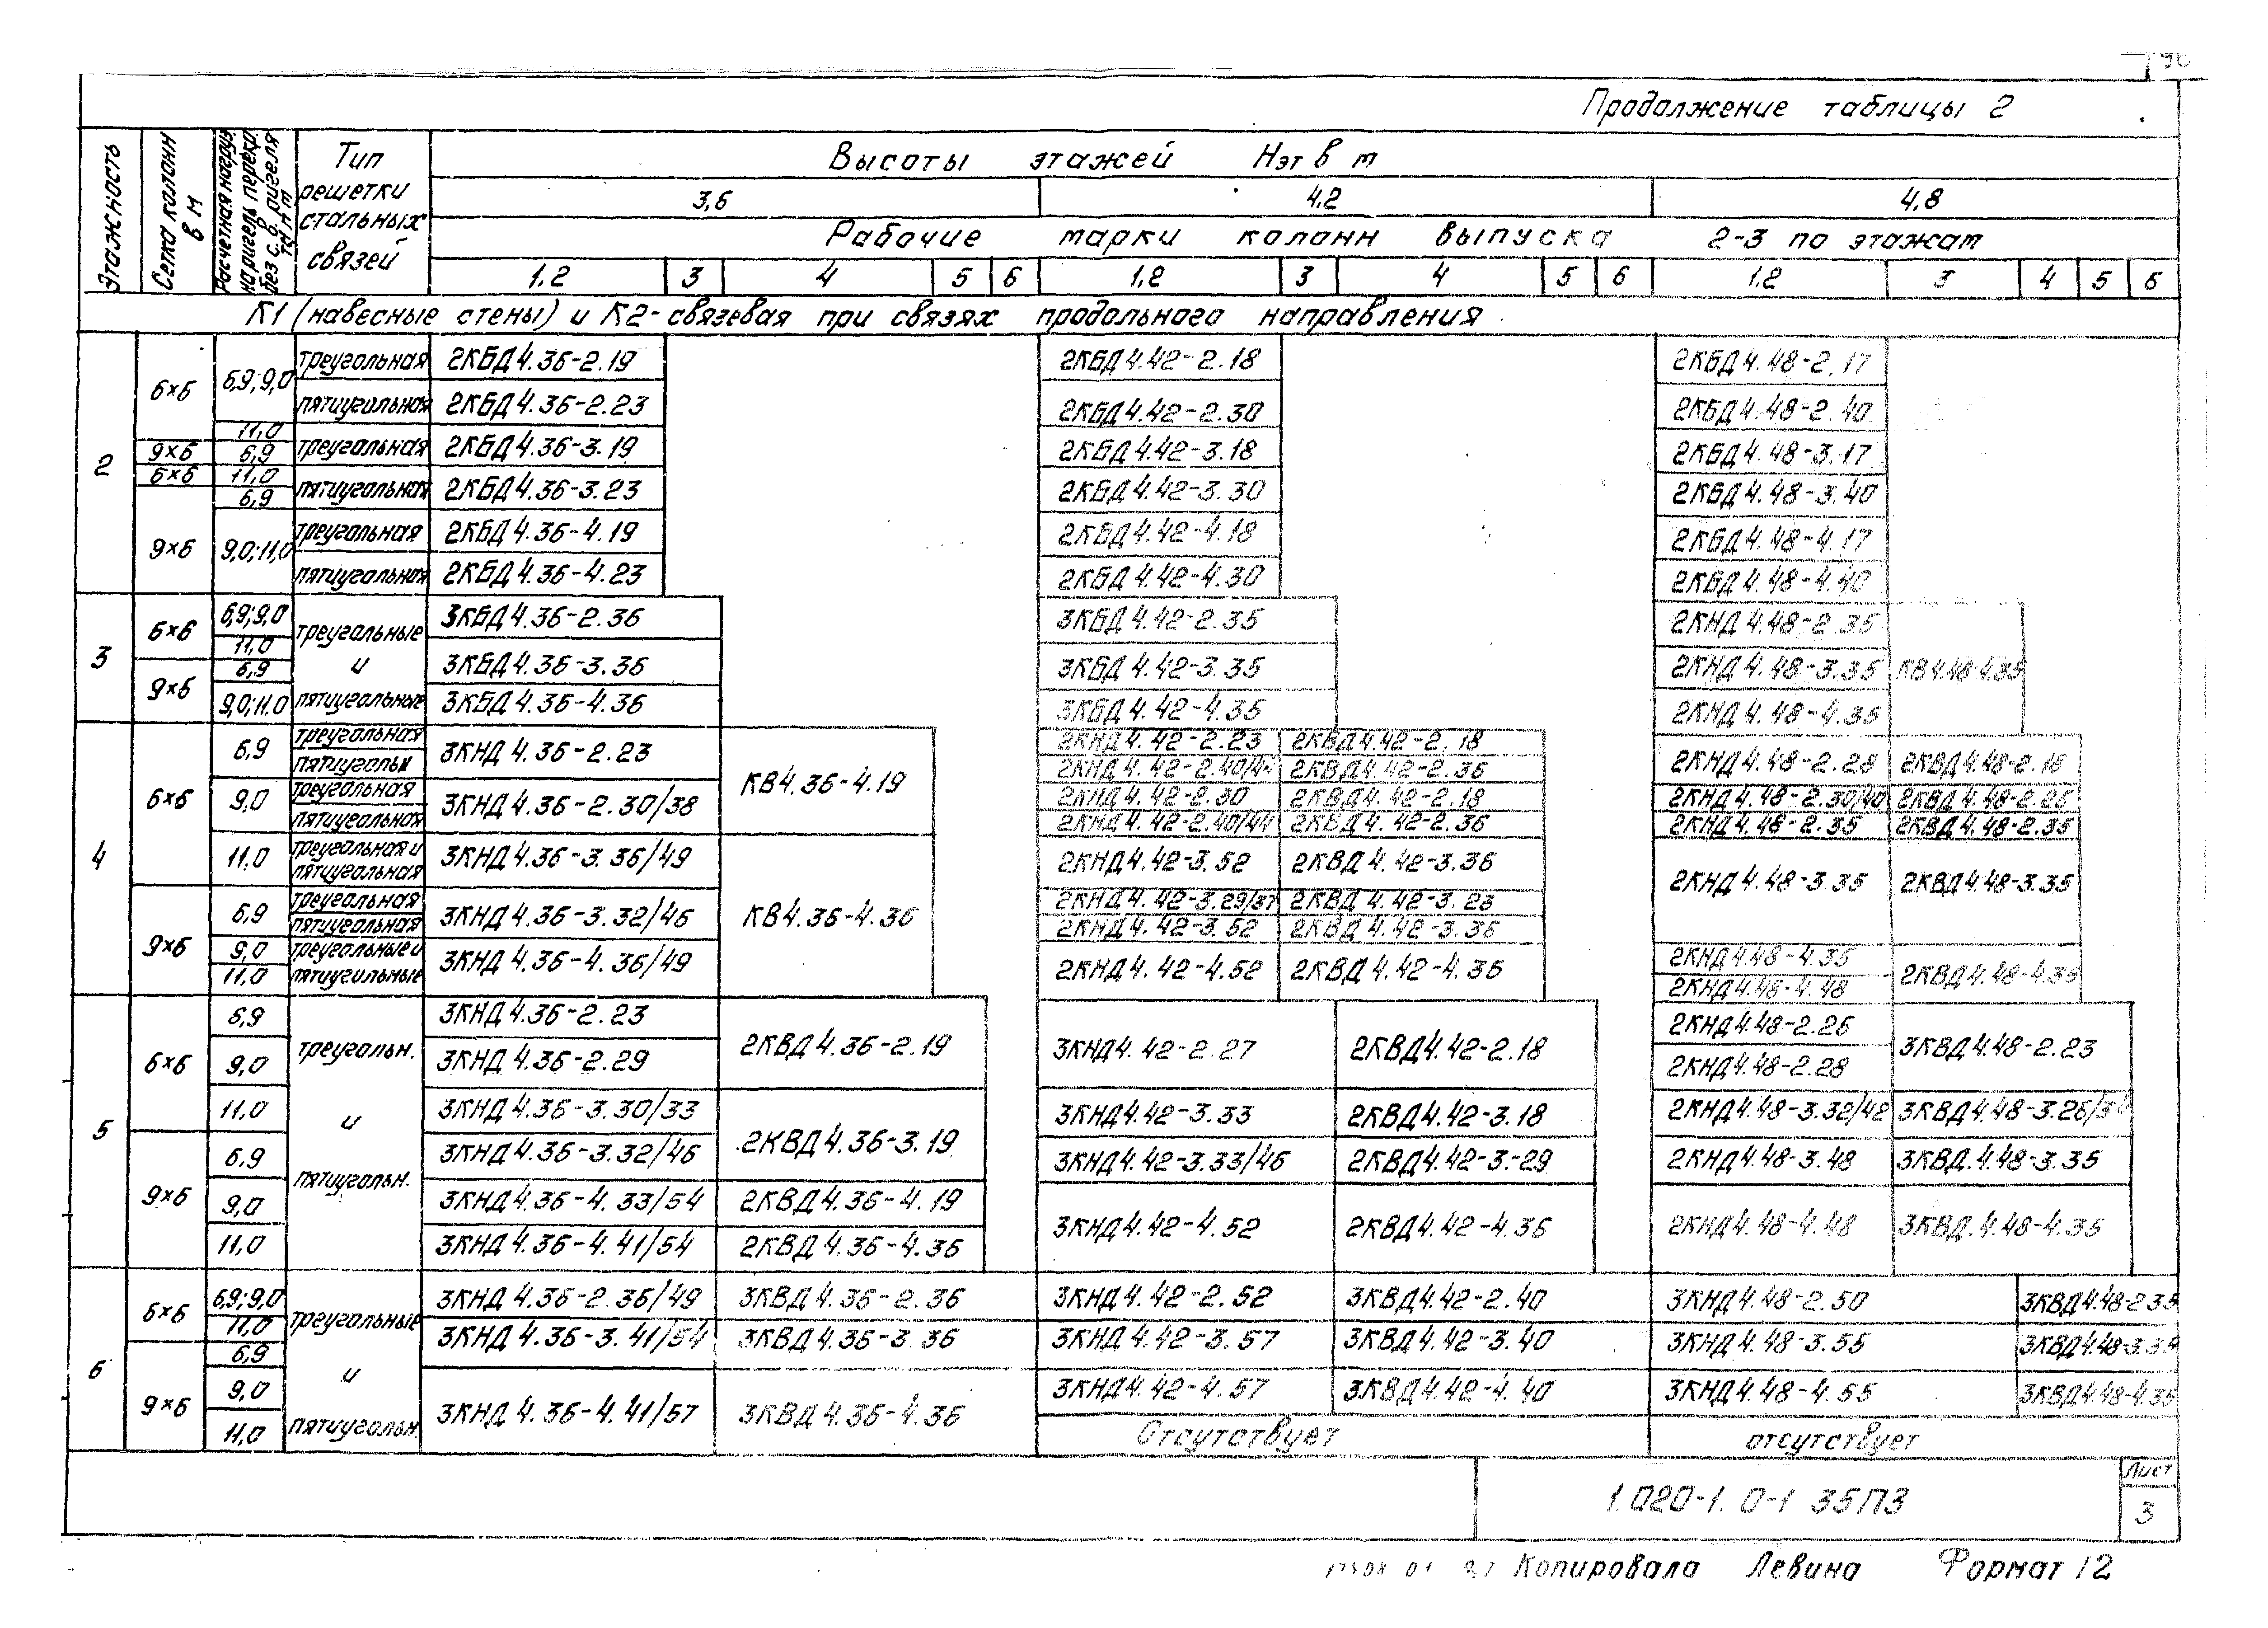 Продолжение таблицы 2
Этажность
Сетка колонн в м
Расчетная нагруз. на ригель перекр. без с.в. ригеля
Тип решетки стальных связей
Высоты этажей Нэт в м
3,6 4,2 4,8
Рабочие марки колонн выпуска 2-3 по этажам
1,2 3 4 5 6 1,2 3 4 5 6 1,2 3 4 5 6
К1 (навесные стены) и К2-связевая при связях продольного направления
2
6×6 6,9; 9,0 треугольная 2КБД4.36-2.19 2КБД4.42-2.18 2КБД4.48-2.17
пятиугольная 2КБД4.36-2.23 2КБД4.42-2.30 2КБД4.48-2.40
11,0
9×6 6,9 треугольная 2КБД4.36-3.19 2КБД4.42-3.18 2КБД4.48-3.17
6×6 11,0
6,9 пятиугольная 2КБД4.36-3.23 2КБД4.42-3.30 2КБД4.48-3.40
9×6 9,0; 11,0 треугольная 2КБД4.36-4.19 2КБД4.42-4.18 2КБД4.48-4.17
пятиугольная 2КБД4.36-4.23 2КБД4.42-4.30 2КБД4.48-4.40
3
6×6 6,9; 9,0 треугольные 3КБД4.36-2.36 3КБД4.42-2.35 2КНД4.48-2.35
11,0
6,9 и 3КБД4.36-3.36 3КБД4.42-3.35 2КНД4.48-3.35 КВ4.48-4.35
9×6 9,0; 11,0 пятиугольные 3КБД4.36-4.36 3КБД4.42-4.35 2КНД4.48-4.35
4
6×6 6,9 треугольная 3КНД4.36-2.23 КВ4.36-4.19 2КНД4.42-2.23 2КВД4.42-2.18 2КНД4.48-2.28 2КВД4.48-2.18
пятиугольн 2КНД4.42-2.40/44 2КВД4.42-2.36
9,0 треугольная 3КНД4.36-2.30/38 2КНД4.42-2.30 2КВД4.42-2.18 2КНД4.48-2.30/40 2КВД4.48-2.26
пятиугольная 2КНД4.42-2.40/44 2КВД4.42-2.36 2КНД4.48-2.35 2КВД4.48-2.35
11,0 треугольная и пятиугольная 3КНД4.36-3.36/49 2КНД4.42-3.52 2КВД4.42-3.36 2КНД4.48-3.35 2КВД4.48-3.35
9×6 6,9 треугольная 3КНД4.36-3.32/46 КВ4.36-4.36 2КНД4.42-3.29/37 2КВД4.42-3.23
пятиугольная 2КНД4.42-3.52 2КВД4.42-3.36
9,0 треугольные и 3КНД4.36-4.36/49 2КНД4.42-4.52 2КВД4.42-4.36 2КНД4.48-4.35 2КВД4.48-4.35
11,0 пятиугольные 2КНД4.48-4.48
5
6×6 6,9 треугольн. 3КНД4.36-2.23 2КВД4.36-2.19 3КНД4.42-2.27 2КВД4.42-2.18 2КНД4.48-2.26 3КВД4.48-2.23
9,0 3КНД4.36-2.29 2КНД4.48-2.28
11,0 и 3КНД4.36-3.30/33 2КВД4.36-3.19 3КНД4.42-3.33 2КВД4.42-3.18 2КНД4.48-3.32/42
9×6 6,9 пятиугольн. 3КНД4.36-3.32/46 3КНД4.42-3.33/46 2КВД4.42-3.-29 2КНД4.48-3.48 3КВД.4.48-3.35
9,0 3КНД4.36-4.33/54 2КВД4.36-4.19 3КНД4.42-4.52 2КВД4.42-4.36 2КНД4.48-4.48 3КВД.4.48-4.35
11,0 3КНД4.36-4.41/54 2КВД4.36-4.36
6
6×6 6,9; 9,0 треугольные 3КНД4.36-2.36/49 3КВД4.36-2.36 3КНД4.42-2.52 3КВД4.42-2.40 3КНД4.48-2.50 3КВД4.48-2.35
11,0 3КНД4.36-3.41/54 3КВД4.36-3.36 3КНД4.42-3.57 3КВД4.42-3.40 3КНД4.48-3.55 3КВД4.48-3.35
6,9
9×6 9,0 и 3КНД4.36-4.41/57 3КВД4.36-4.36 3КНД4.42-4.57 3КВД4.42-4.40 3КНД4.48-4.55 3КВД4.48-4.35
11,0 пятиугольн. Отсутствует отсутствует
1.020-1. 0-1 35ПЗ
Лист
3
Копировала Левина Формат 12